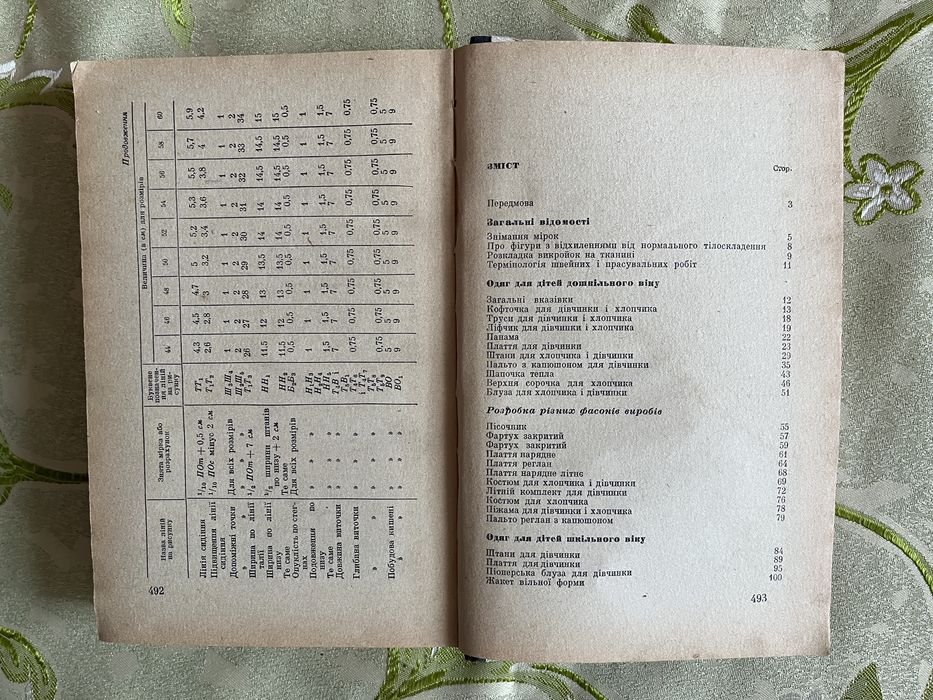 Продовження
Назва ліній на рисунку | Знята мірка або розрахунок | Буквене позначення ліній на рисунку | Величина (в см) для розмірів
44 | 46 | 48 | 50 | 52 | 54 | 56 | 58 | 60
Лінія сидіння | 1/10 ПОт + 0,5 см | ТТ₁ | 4,3 | 4,5 | 4,7 | 5 | 5,2 | 5,3 | 5,5 | 5,7 | 5,9
Підвищення лінії сидіння | 1/10 ПОс мінус 2 см | Т₁Т₂ | 2,6 | 2,8 | 3 | 3,2 | 3,4 | 3,6 | 3,8 | 4 | 4,2
Допоміжні точки | Для всіх розмірів | 1 | 1 | 1 | 1 | 1 | 1 | 1 | 1 | 1
» | » | 2 | 2 | 2 | 2 | 2 | 2 | 2 | 2 | 2
Ширина по лінії талії | 1/2 ПОт + 7 см | 26 | 27 | 28 | 29 | 30 | 31 | 32 | 33 | 34
Ширина по лінії низу | 1/2 ширини штанів по низу + 2 см | НН₁ | 11,5 | 12 | 13 | 13,5 | 14 | 14 | 14,5 | 14,5 | 15
Те саме | Те саме | НН₂ | 11,5 | 12 | 13 | 13,5 | 14 | 14 | 14,5 | 14,5 | 15
Опуклість по стегнах | Для всіх розмірів | 0,5 | 0,5 | 0,5 | 0,5 | 0,5 | 0,5 | 0,5 | 0,5 | 0,5
Подовження по низу | » | 1 | 1 | 1 | 1 | 1 | 1 | 1 | 1 | 1
Те саме | » | 1,5 | 1,5 | 1,5 | 1,5 | 1,5 | 1,5 | 1,5 | 1,5 | 1,5
Довжина виточки | » | 7 | 7 | 7 | 7 | 7 | 7 | 7 | 7 | 7
Глибина виточки | » | 0,75 | 0,75 | 0,75 | 0,75 | 0,75 | 0,75 | 0,75 | 0,75 | 0,75
» | » | 0,75 | 0,75 | 0,75 | 0,75 | 0,75 | 0,75 | 0,75 | 0,75 | 0,75
Побудова кишені | » | ВО | 5 | 5 | 5 | 5 | 5 | 5 | 5 | 5 | 5
» | ВО₁ | 9 | 9 | 9 | 9 | 9 | 9 | 9 | 9 | 9
492
ЗМІСТ
Стор.
Передмова 3
Загальні відомості
Знімання мірок 5
Про фігури з відхиленнями від нормального тілоскладення 8
Розкладка викройок на тканині 9
Термінологія швейних і прасувальних робіт 11
Одяг для дітей дошкільного віку
Загальні вказівки 12
Кофточка для дівчинки і хлопчика 13
Труси для дівчинки і хлопчика 18
Ліфчик для дівчинки і хлопчика 19
Панама 22
Плаття для дівчинки 23
Штани для хлопчика і дівчинки 29
Пальто з капюшоном для дівчинки 35
Шапочка тепла 43
Верхня сорочка для хлопчика 46
Блуза для хлопчика і дівчинки 51
Розробка різних фасонів виробів
Пісочник 55
Фартух закритий 57
Фартух закритий 59
Плаття нарядне 61
Плаття реглан 64
Плаття нарядне літнє 68
Костюм для хлопчика і дівчинки 69
Літній комплект для дівчинки 72
Костюм для хлопчика 76
Піжама для хлопчика і дівчинки 78
Пальто реглан з капюшоном 79
Одяг для дітей шкільного віку
Штани для дівчинки 84
Плаття для дівчинки 89
Піонерська блуза для дівчинки 95
Жакет вільної форми 100
493